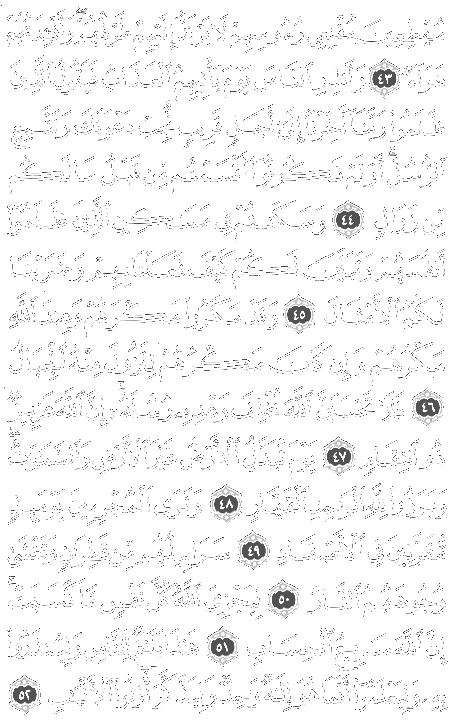 مُهْطِعِينَ مُقْنِعِي رُءُوسِهِمْ لَا يَرْتَدُّ إِلَيْهِمْ طَرْفُهُمْ ۖ وَأَفْـِٔدَتُهُمْ
هَوَآءٌ ٤٣ وَأَنذِرِ ٱلنَّاسَ يَوْمَ يَأْتِيهِمُ ٱلْعَذَابُ فَيَقُولُ ٱلَّذِينَ
ظَلَمُوا۟ رَبَّنَآ أَخِّرْنَآ إِلَىٰٓ أَجَلٍ قَرِيبٍ نُّجِبْ دَعْوَتَكَ وَنَتَّبِعِ
ٱلرُّسُلَ ۗ أَوَلَمْ تَكُونُوٓا۟ أَقْسَمْتُم مِّن قَبْلُ مَا لَكُم
مِّن زَوَالٍ ٤٤ وَسَكَنتُمْ فِي مَسَـٰكِنِ ٱلَّذِينَ ظَلَمُوٓا۟
أَنفُسَهُمْ وَتَبَيَّنَ لَكُمْ كَيْفَ فَعَلْنَا بِهِمْ وَضَرَبْنَا
لَكُمُ ٱلْأَمْثَالَ ٤٥ وَقَدْ مَكَرُوا۟ مَكْرَهُمْ وَعِندَ ٱللَّهِ
مَكْرُهُمْ وَإِن كَانَ مَكْرُهُمْ لِتَزُولَ مِنْهُ ٱلْجِبَالُ
٤٦ فَلَا تَحْسَبَنَّ ٱللَّهَ مُخْلِفَ وَعْدِهِۦ رُسُلَهُۥٓ ۗ إِنَّ ٱللَّهَ عَزِيزٌ
ذُو ٱنتِقَامٍ ٤٧ يَوْمَ تُبَدَّلُ ٱلْأَرْضُ غَيْرَ ٱلْأَرْضِ وَٱلسَّمَـٰوَٰتُ ۖ
وَبَرَزُوا۟ لِلَّهِ ٱلْوَٰحِدِ ٱلْقَهَّارِ ٤٨ وَتَرَى ٱلْمُجْرِمِينَ يَوْمَئِذٍ
مُّقَرَّنِينَ فِي ٱلْأَصْفَادِ ٤٩ سَرَابِيلُهُم مِّن قَطِرَانٍ وَتَغْشَىٰ
وُجُوهَهُمُ ٱلنَّارُ ٥٠ لِيَجْزِيَ ٱللَّهُ كُلَّ نَفْسٍ مَّا كَسَبَتْ ۚ
إِنَّ ٱللَّهَ سَرِيعُ ٱلْحِسَابِ ٥١ هَـٰذَا بَلَـٰغٌ لِّلنَّاسِ وَلِيُنذَرُوا۟
بِهِۦ وَلِيَعْلَمُوٓا۟ أَنَّمَا هُوَ إِلَـٰهٌ وَٰحِدٌ وَلِيَذَّكَّرَ أُو۟لُوا۟ ٱلْأَلْبَـٰبِ ٥٢